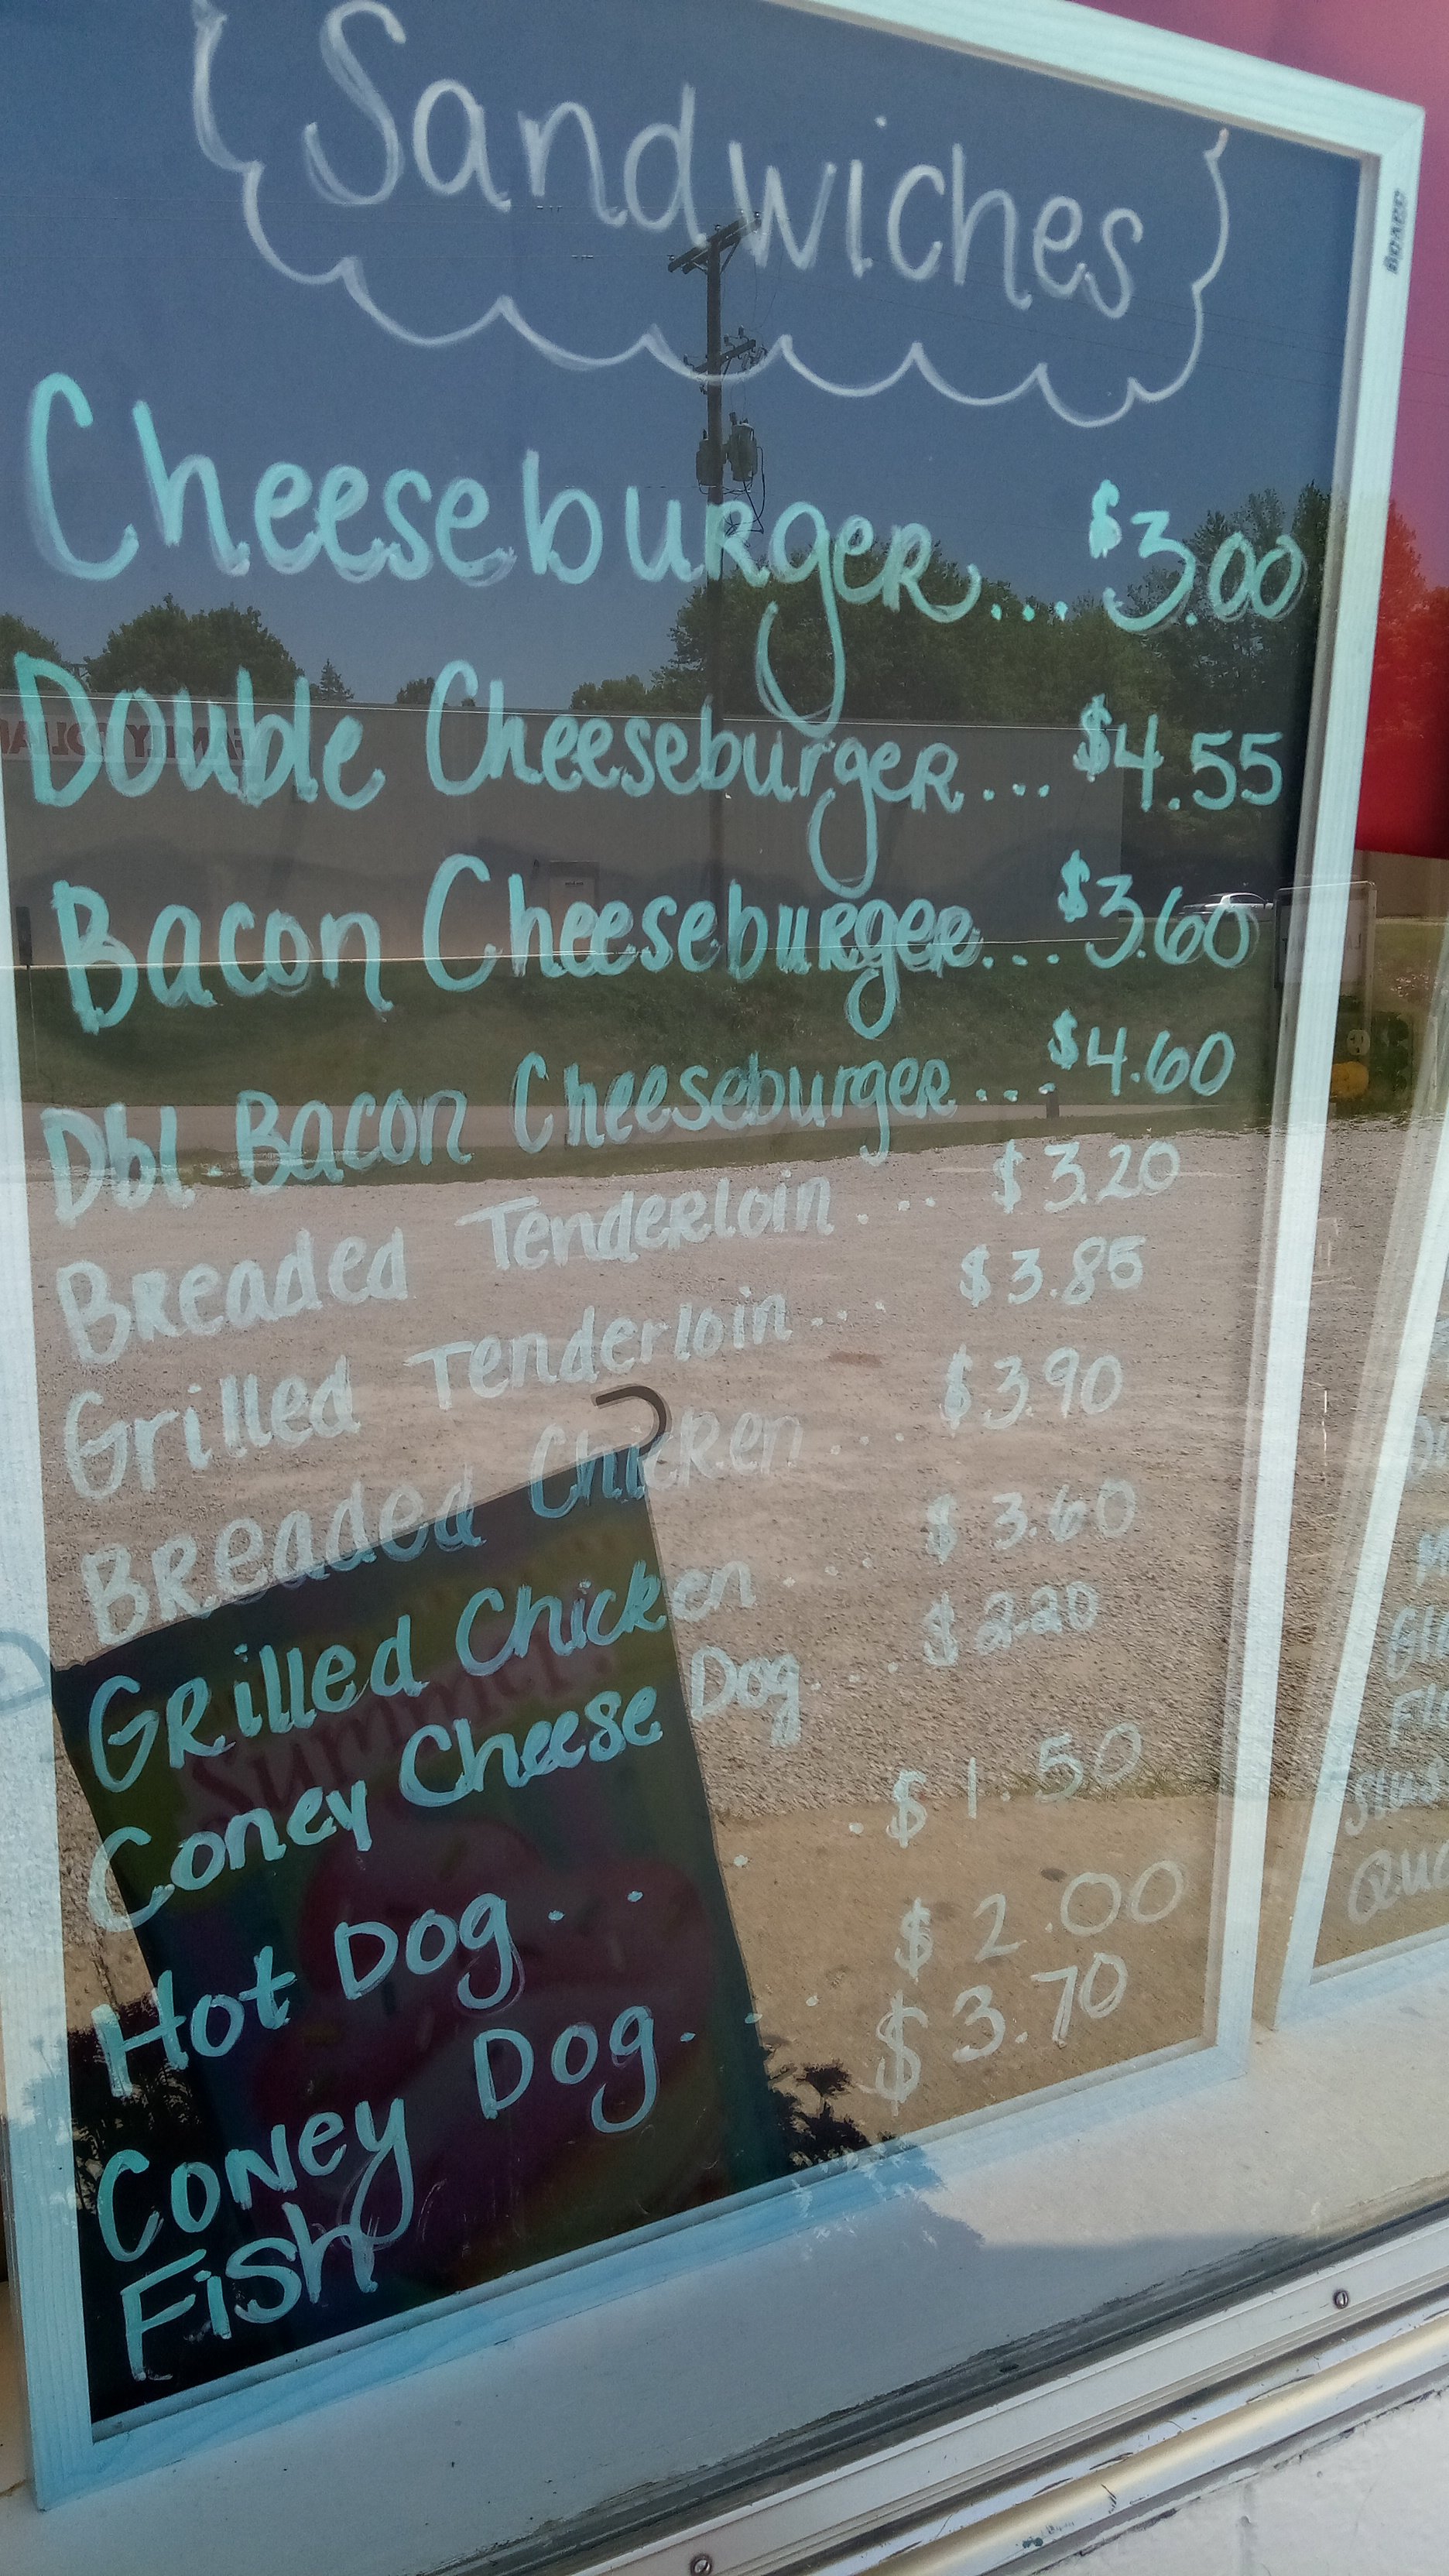 Sandwiches
Cheeseburger... $3.00
Double Cheeseburger... $4.55
Bacon Cheeseburger... $3.60
Dbl. Bacon Cheeseburger... $4.60
Breaded Tenderloin... $3.20
Grilled Tenderloin... $3.85
Breaded Chicken... $3.90
Grilled Chicken... $3.60
Coney Cheese Dog... $2.20
Hot Dog.... $1.50
Coney Dog... $2.00
Fish $3.70
Summer